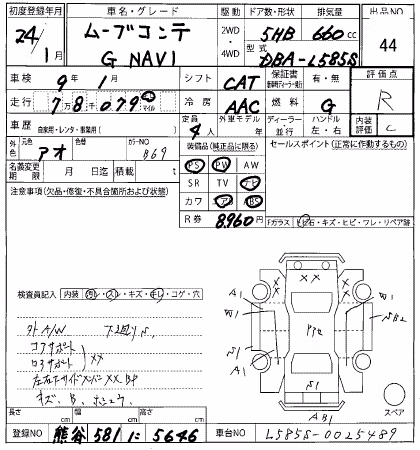 初度登録年月 車名・グレード 駆動 ドア数・形状 排気量 出品NO
24年 1月 ムーブコンテ G NAVI 2WD・4WD 5HB 660cc 44
型式 DBA-L585S
車検 9年 1月 シフト CAT 保証書 有・無 評価点 R
走行 7万8千079 キロ マイル 冷房 AAC 燃料 G
車歴 自家用・レンタ・事業用( ) 定員 4人 外車モデル 年 ディーラー・並行 ハンドル 左・右 内装評価 C
外色 元色 アオ 色替 カラーNO B69 装備品(純正品に限る) セールスポイント(正常に作動するもの)
名義変更期限 月 日迄 積載 t PS PW AW
注意事項(欠品・修復・不具合箇所および状態) SR TV ナビ
カワ エアB ABS
R券 8,960円 Fガラス 飛び石・キズ・ヒビ・ワレ・リペア跡
検査員記入 内装 汚れ・スレ・キズ・キレ・コゲ・穴
外A/W 下廻りS
コアサポート
ロアサポート XX
左右サイドメンバー XX BP
キズ、B、ホシュウ
A1 XX XX A1
S1 A1
S1
AB1
スペア
長さ cm 幅 cm 高さ cm
登録NO 熊谷 581 に 5646 車台NO L585S-0025489